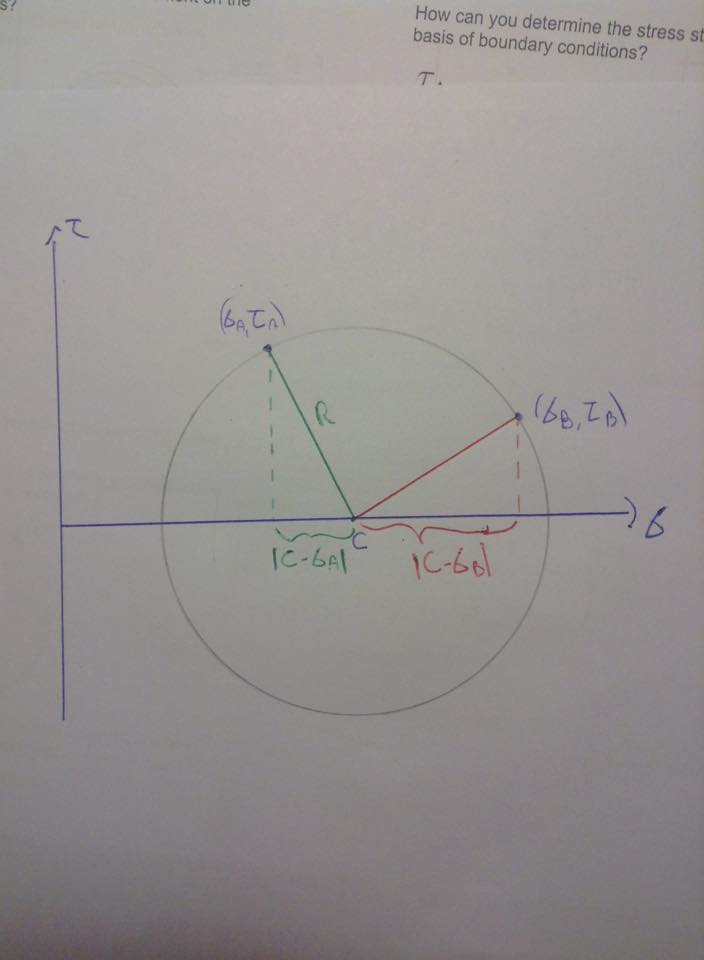 s?
How can you determine the stress st
basis of boundary conditions?
τ.
τ
(σA, τA)
R
(σB, τB)
C
σ
|C-σA|
|C-σB|